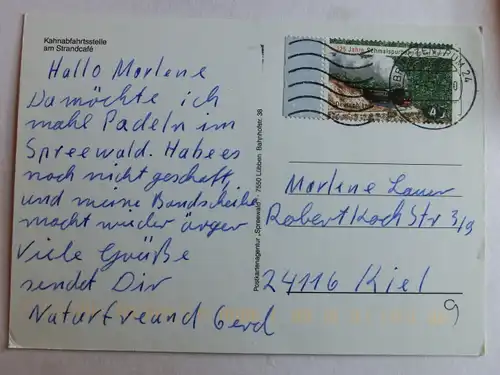 Kahnabfahrtsstelle
am Strandcafé
Hallo Marlene
Da möchte ich
mahl Padeln im
Spreewald. Habe es
noch nicht geschaft
und meine Bandscheibe
macht wieder ärger
Viele Grüße
sendet Dir
Naturfreund Gerd
Postkartenagentur „Spreewald“ · 7550 Lübben · Bahnhofstr. 38
125 Jahre Schmalspur
BRIEFZENTRUM 24
45
Marlene Lauer
Robert Koch Str 3/9
24116 Kiel
9